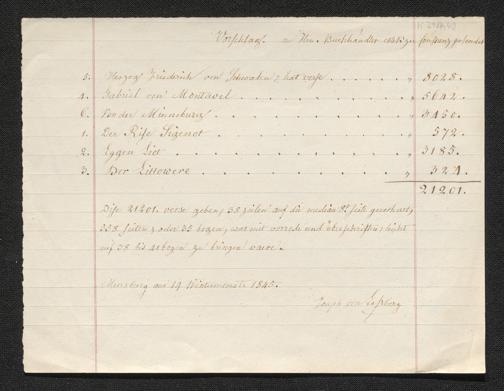 Vorschlag. Hn. Buchhändler
5. Herzog Friedrich von Schwaben; hat verse . . . . . . " 8028.
4. Gabriel von Montavel . . . . . . . . . " 5642.
6. Von der Minneburg . . . . . . . . . . " 3450.
1. Der Rise Sigenot . . . . . . . . . . " 572.
2. Eggen Liet . . . . . . . . . . . " 3185.
3. Der Littowere . . . . . . . . . . " 324.
21201.
Dise 21201. verse geben, 38 zeilen auf die median 8º seite gerechnet,
558 seiten, oder 35 bogen, was mit vorrede und überschriften, leicht
auf 38 bis 40 bogen zu bringen waere.
Mersburg am 14 1845.
Joseph von Laßberg